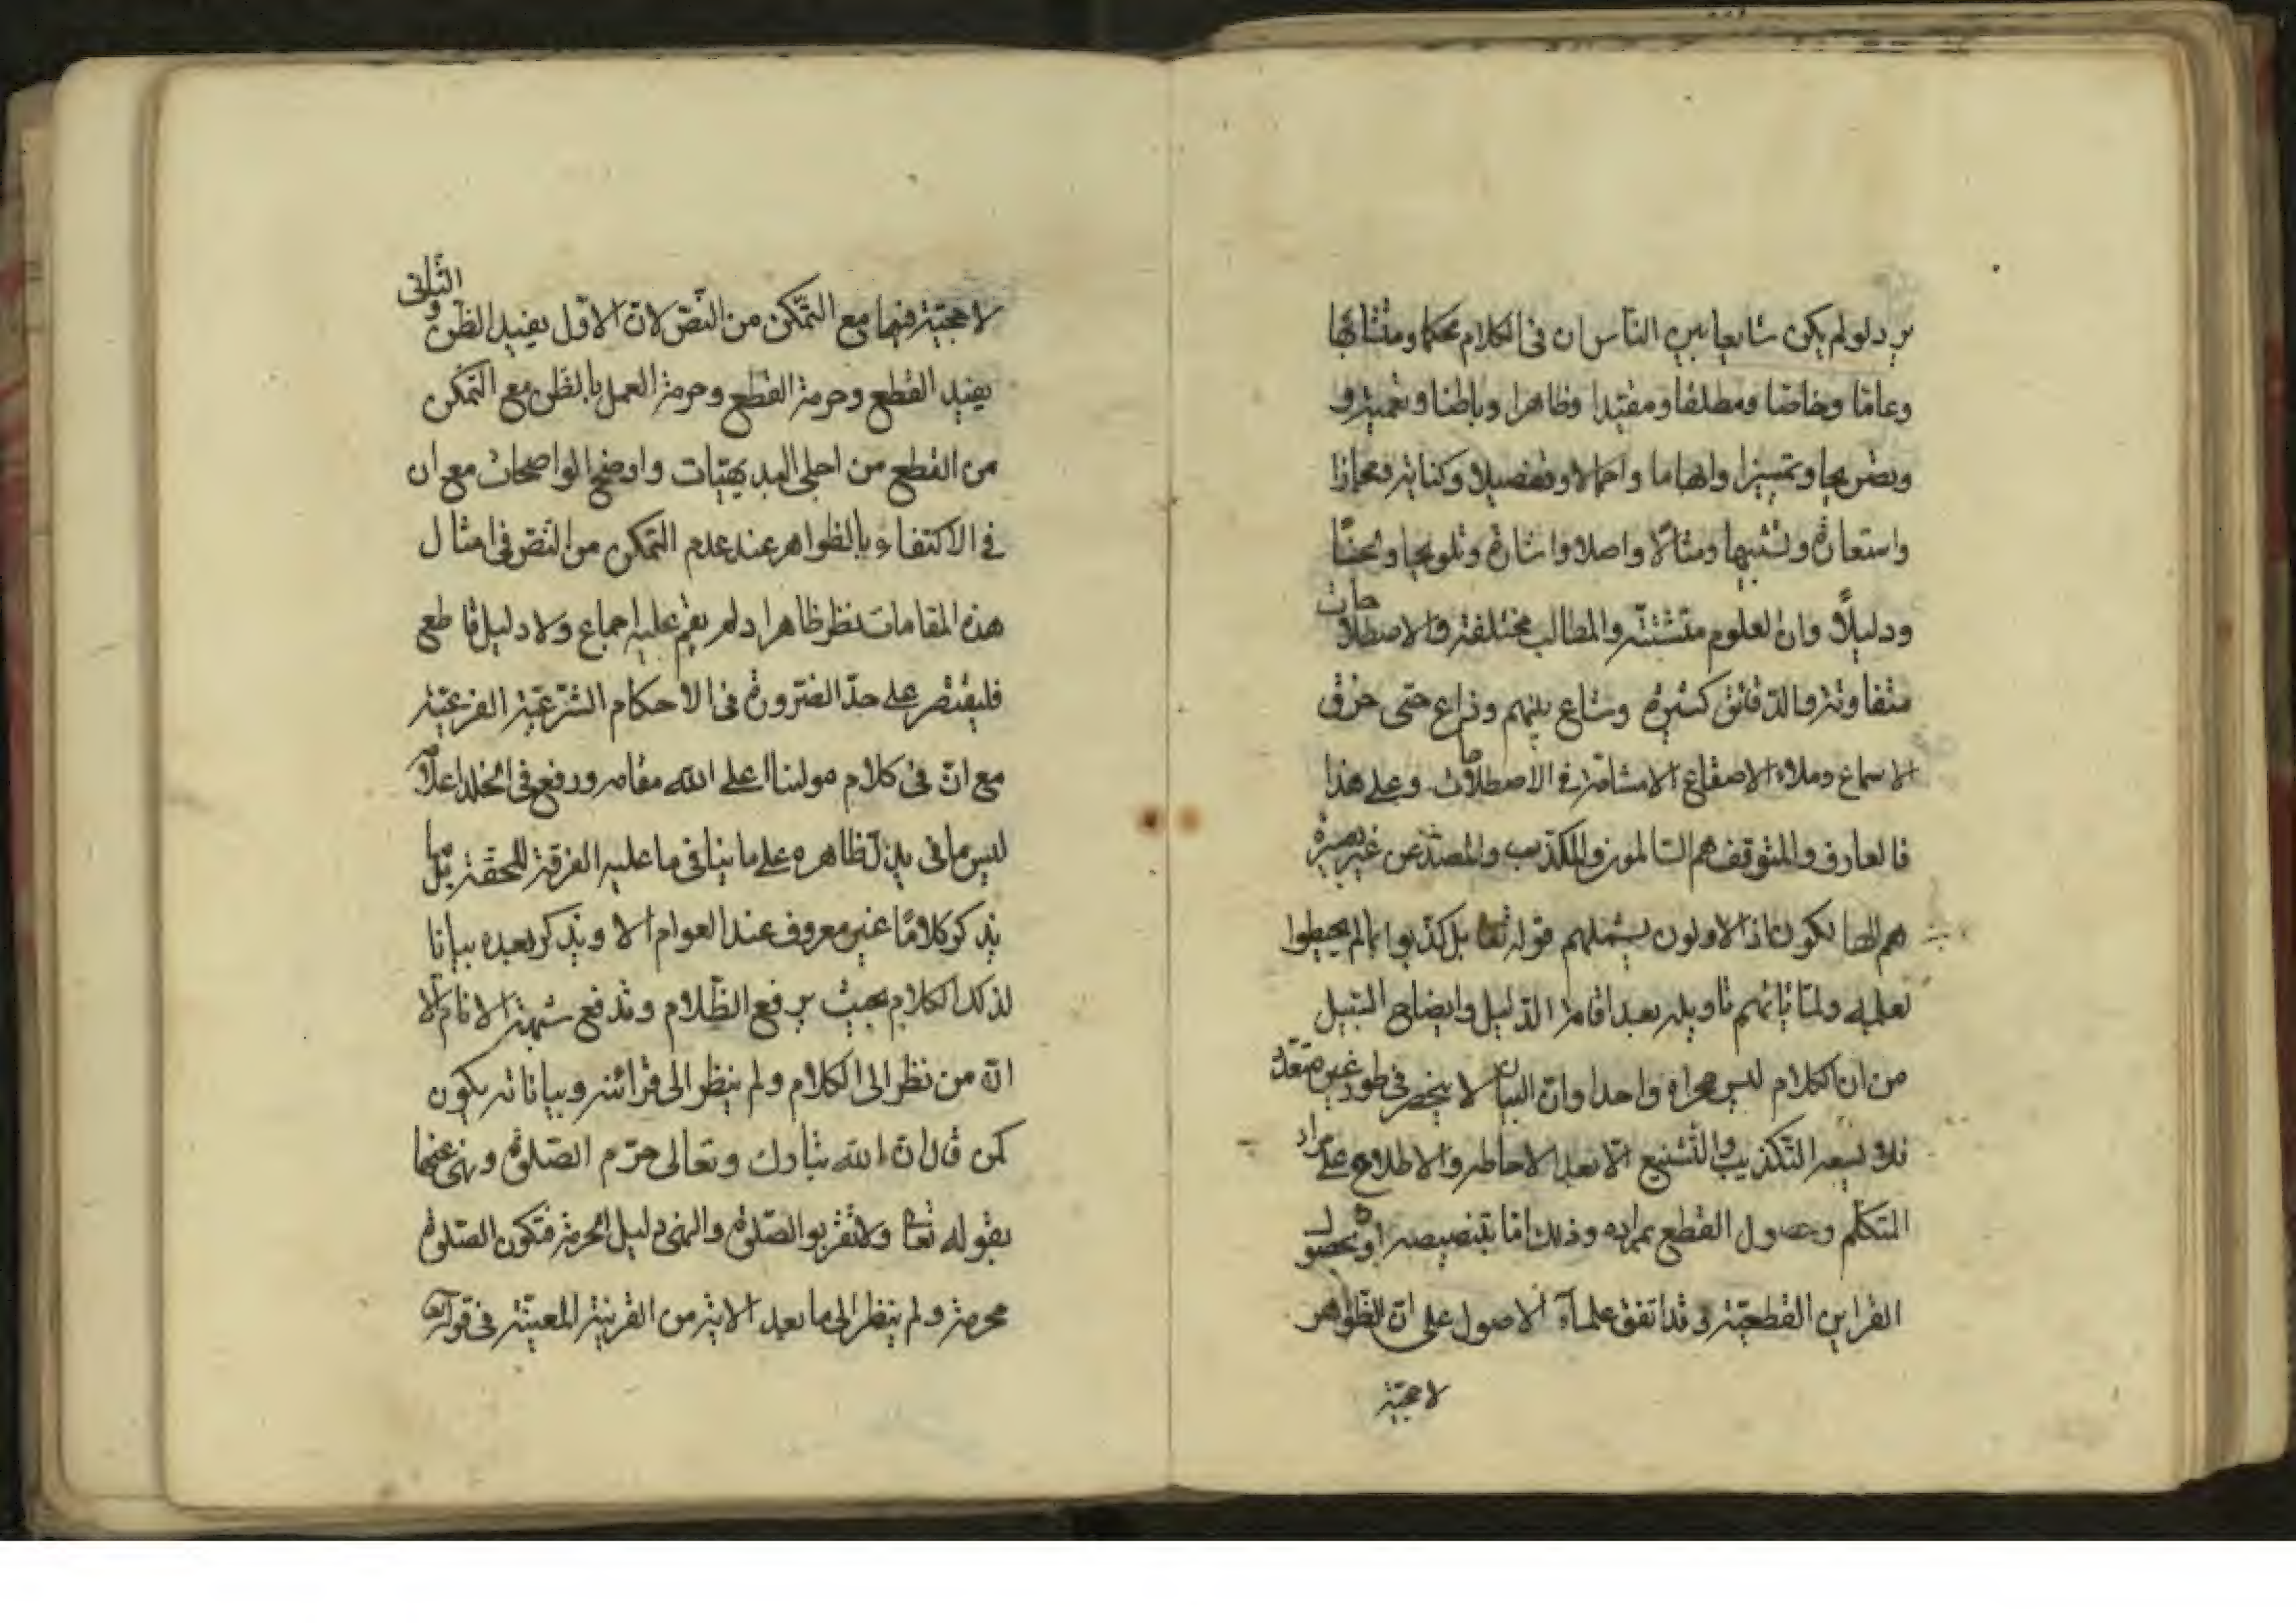 يرد لو لم يكن شايعا بين الناس ان فى الكلام محكما ومتشابها
وعاما وخاصا ومطلقا ومقيدا وظاهرا وباطنا وتعمية و
وتصريحا وتمييزا وابهاما واجمالا وتفصيلا وكناية ومجازا
واستعارة وتشبيها ومثالا واصلا واشارة وتلويحا ولحنًا
ودليلاً وان العلوم متشتتة والمطالب مختلفة والاصطلاحات
متفاوتة والدقائق كثيرة وشاع بينهم وذاع حتى خرق
الاسماع وملاء الاصقاع الا مشاحة فى الاصطلاحات وعلى هذا
فالعارف والمتوقف هم السالمون والمكذب والمصدق عن غير بصيرة
هم الهالكون اذ الاولون يشملهم قوله تعا بل كذبوا بما لم يحيطوا
بعلمه ولما ياتهم تاويله بعد اقامة الدليل وايضاح السبيل
من ان الكلام ليس مجراه واحدا وان البيان لا ينحصر فى طور غير متعدد
فلا يسعه التكذيب والتشنيع الا بعد الاحاطه والاطلاع على مراد
المتكلم وحصول القطع بمراده وذلك اما بتنصيصه او بحصول
القراين القطعية و قد اتفق علماء الاصول على ان الظواهر
لا حجية
لا حجية فيها مع التمكن من النص لان الاول يفيد الظن والثانى
يفيد القطع وحرمة القطع وحرمة العمل بالظن مع التمكن
من القطع من اجلى البديهيات واوضح الواضحات مع ان
فى الاكتفاء بالظواهر عند عدم التمكن من النص فى امثال
هذه المقامات نظر ظاهر اذ لم يقم عليه اجماع ولا دليل قاطع
فليقتصر على حد الضرورة فى الاحكام الشرعية الفرعية
مع ان فى كلام مولينا اعلى الله مقامه ورفع فى الخلد اعلامه
ليس ما فى يدل ظاهره على ما ينافى ما عليه الفرقة المحقة بل ما
يذكر كلامًا غير معروف عند العوام الا ويذكر بعده بيانا
لذلك الكلام بحيث يرفع الظلام وتدفع شبهة الانام الا
ان من نظر الى الكلام ولم ينظر الى قرائنه وبياناته يكون
كمن قال ان الله تبارك وتعالى حرم الصلوة ونهى عنها
بقوله تعا ولا تقربوا الصلوة والنهى دليل الحرمة فتكون الصلوة
محرمة ولم ينظر الى ما بعد الاية من القرينة المعينة فى قوله تع